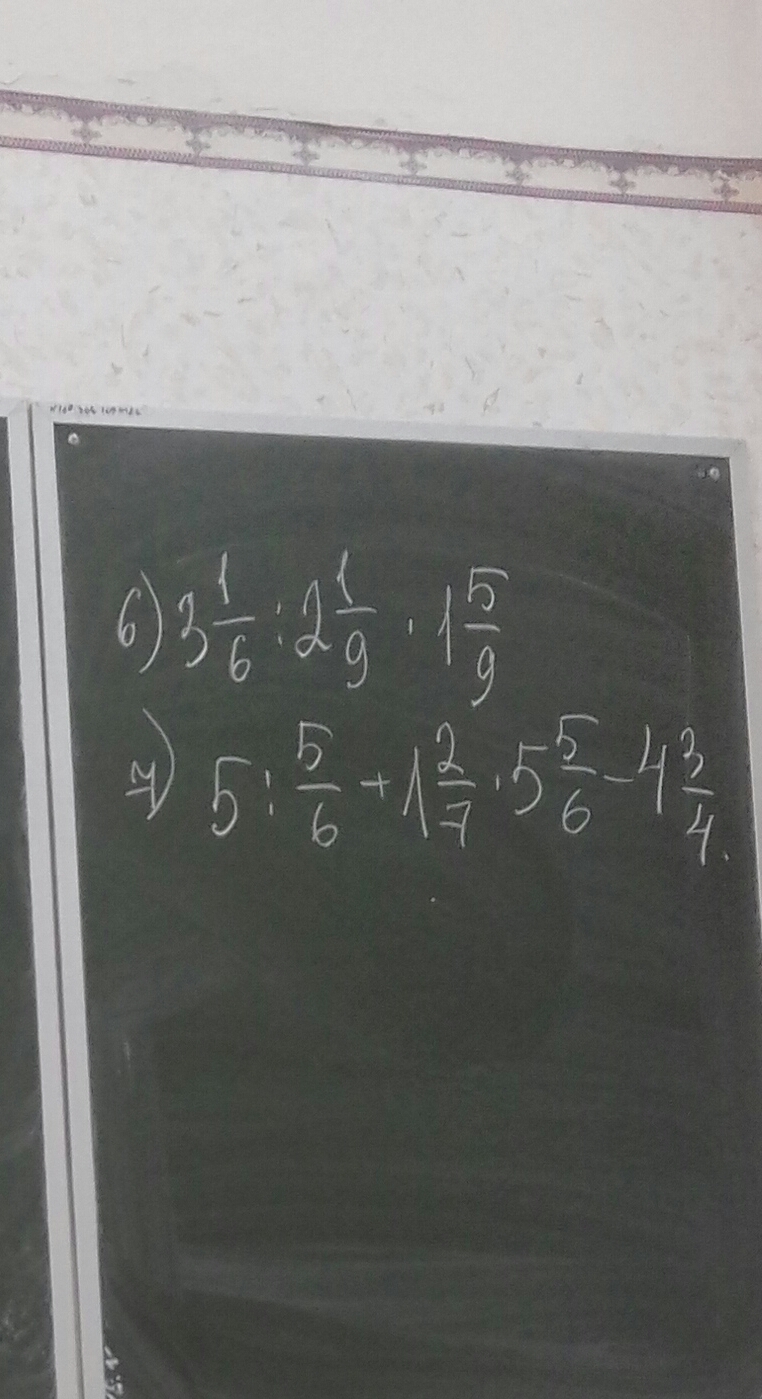 6) 3 1/6 : 2 1/9 · 1 5/9
7) 5 : 5/6 + 1 2/7 · 5 5/6 - 4 3/4.